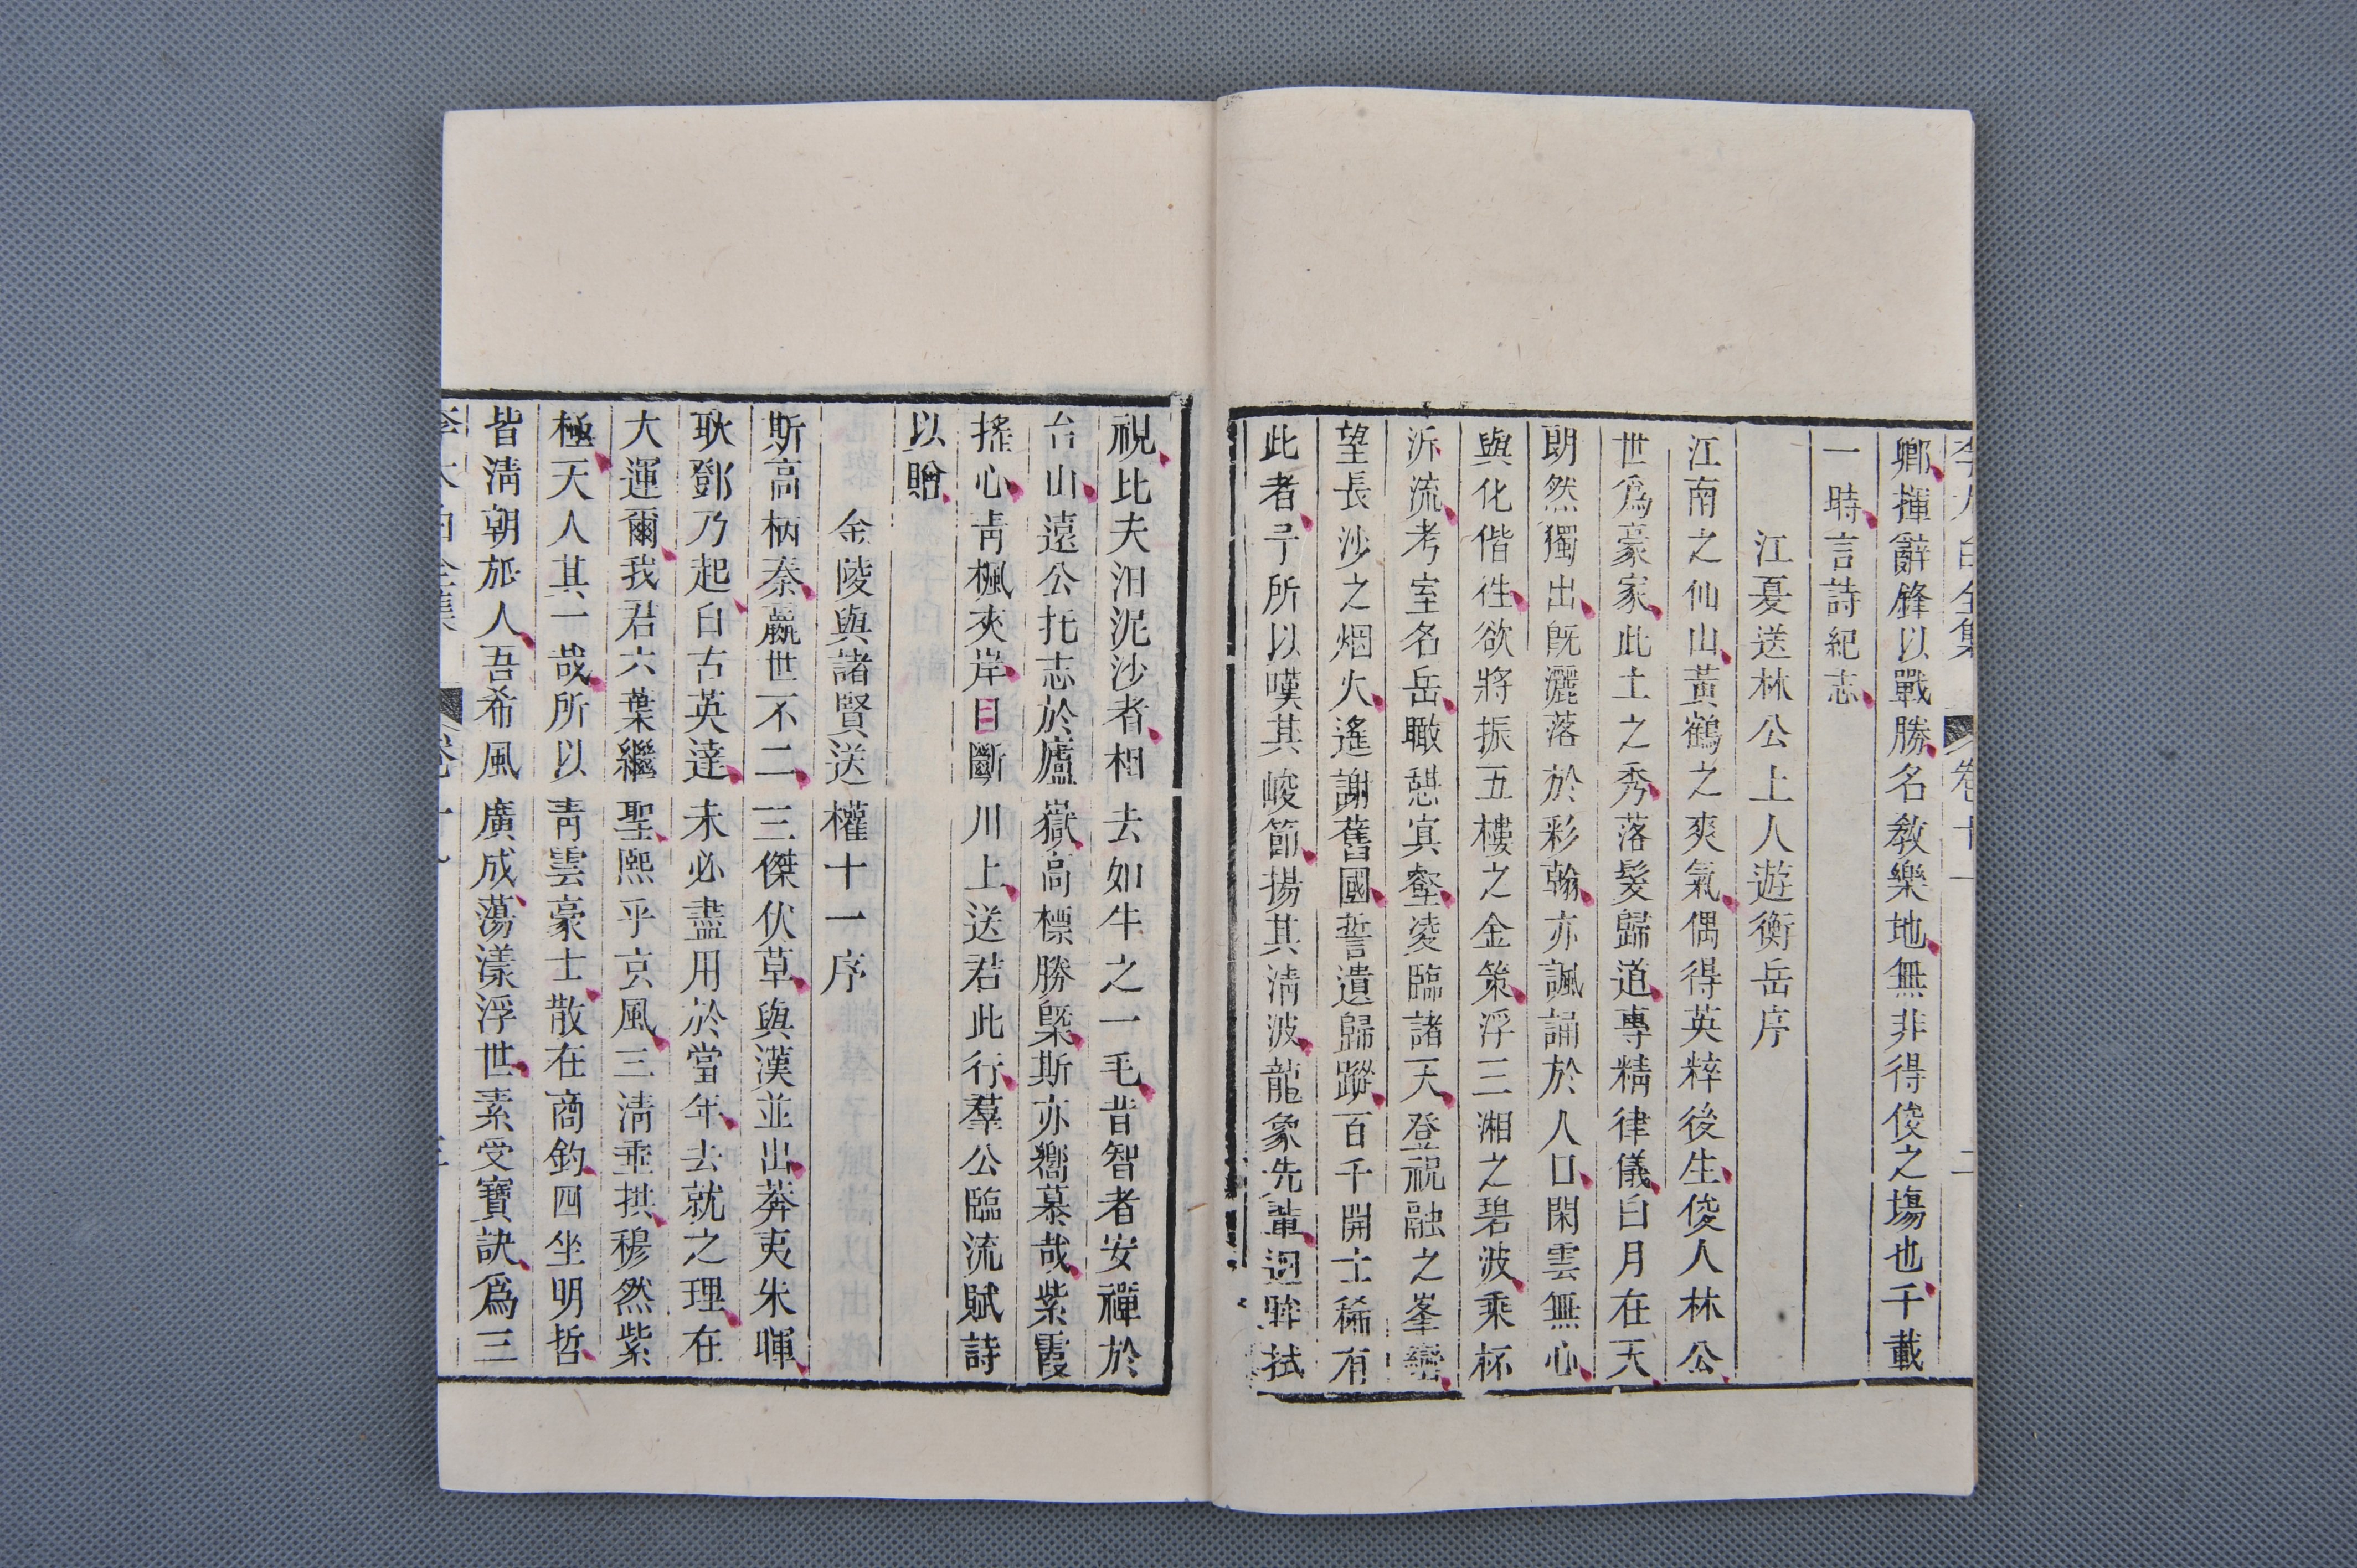 鄉揮辭鋒以戰勝名敎樂地無非得俊之塲也千載
一時言詩紀志
江夏送林公上人遊衡岳序
江南之仙山黃鶴之爽氣偶得英粹後生俊人林公
世爲豪家此土之秀落髮歸道專精律儀白月在天
朗然獨出旣灑落於彩翰亦諷誦於人口閑雲無心
與化偕徃欲將振五樓之金策浮三湘之碧波乘杯
泝流考室名岳瞰憇㝠壑凌臨諸天登祝融之峯巒
望長沙之烟火遙謝舊國誓遺歸蹤百千開士稀有
此者予所以嘆其峻節揚其淸波龍象先輩迴眸拭
視比夫汨泥沙者相去如牛之一毛昔智者安禪於
台山遠公托志於廬嶽高標勝槩斯亦嚮慕哉紫霞
搖心靑楓夾岸目斷川上送君此行羣公臨流賦詩
以贈
金陵與諸賢送權十一序
斯高柄秦嬴世不二三傑伏草與漢並出莽夷朱暉
耿鄧乃起自古英達未必盡用於當年去就之理在
大運爾我君六葉繼聖熙乎玄風三淸垂拱穆然紫
極天人其一哉所以靑雲豪士散在商釣四坐明哲
皆淸朝旅人吾希風廣成蕩漾浮世素受寶訣爲三